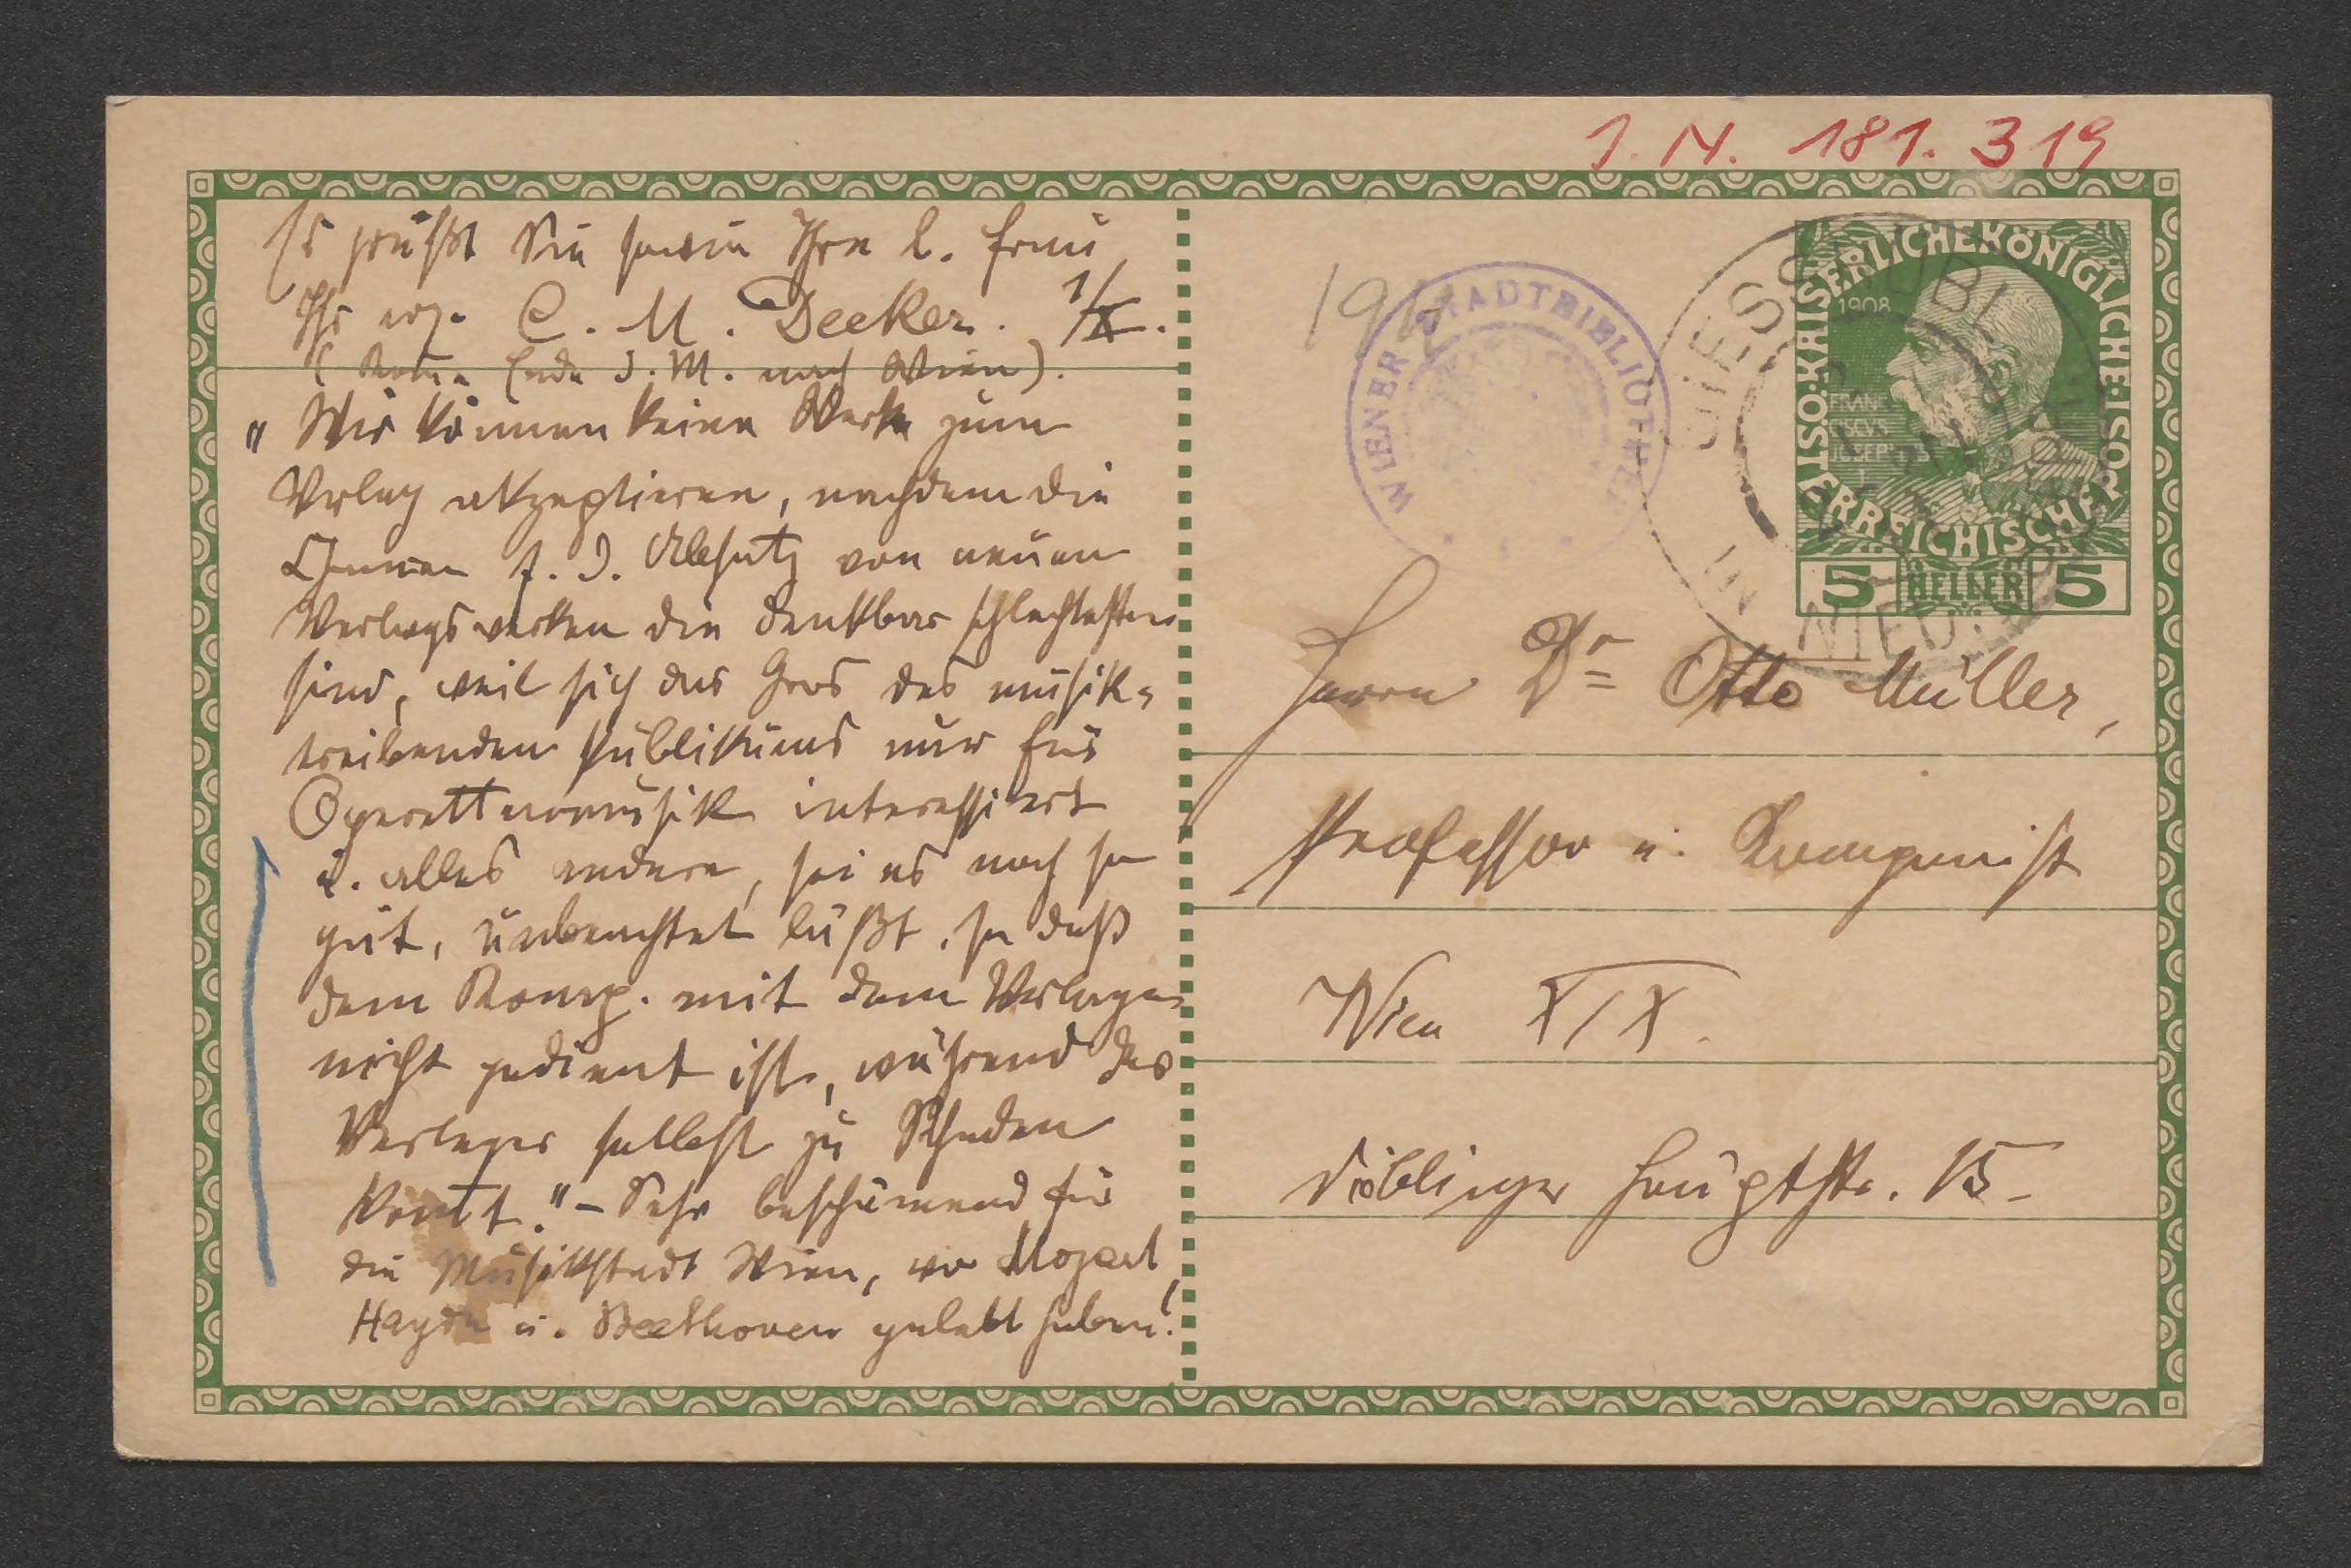 I. N. 181.319
Es grüßt Sie sowie Ihre l. Frau
Ihr erg. C. M. Decker. 1/X.
(Komme Ende d. M. nach Wien).
"Wir können keine Werke zum
Verlag akzeptieren, nachdem die
Chancen f. d. Absatz von neuen
Verlagswerken die denkbar schlechtesten
sind, weil sich das Gros des musik-
treibenden Publikums nur für
Operettenmusik interessiert
u. alles andere, sei es noch so
gut, unbeachtet läßt, so daß
dem Komp. mit dem Verlage
nicht gedient ist, während der
Verleger selbst zu Schaden
kom̅t." – Sehr beschämend für
die Musikstadt Wien, wo Mozart,
Haydn u. Beethoven gelebt haben!
WIENER STADTBIBLIOTHEK
KAISERLICHE KÖNIGLICHE ÖSTERREICHISCHE POST
1908
FRANCISCVS JOSEPHVS I
5 HELLER 5
GIESSHÜBL
IN NIED:
Herrn Dr Otto Müller,
Professor u. Komponist
Wien XIX.
Döblinger Hauptstr. 15